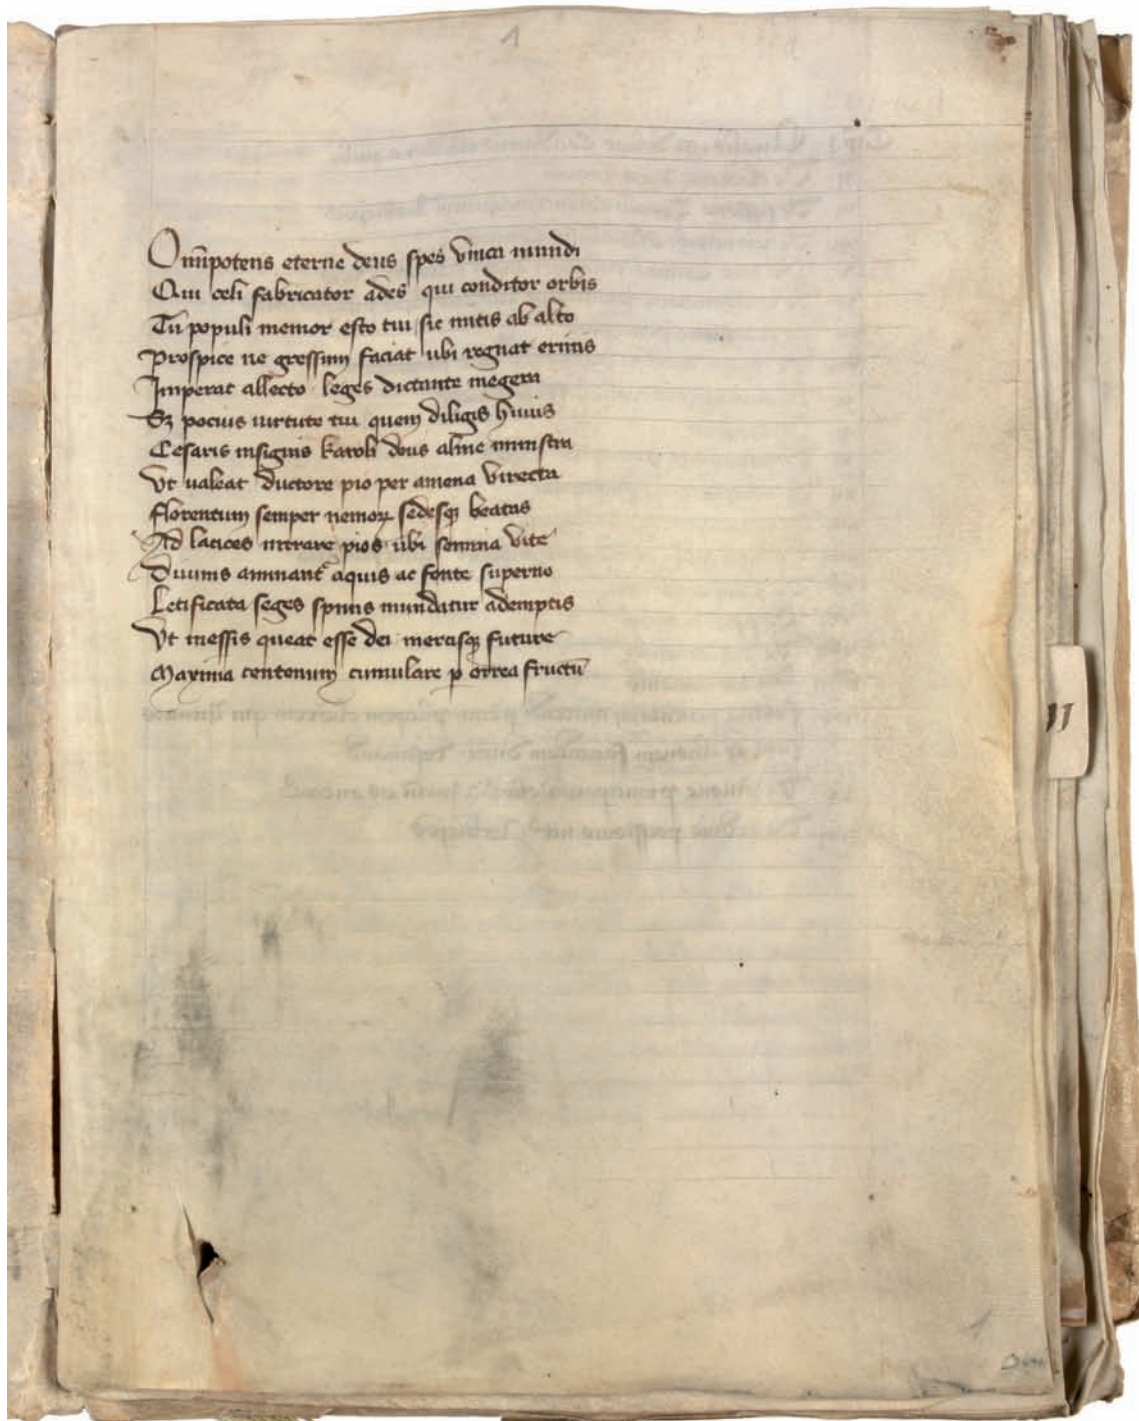 1
Om̅potens eterne deus spes vnica mundi
Qui celi fabricator ades qui conditor orbis
Tu populi memor esto tui sic mitis ab alto
Prospice ne gressum faciat ubi regnat erinis
Imperat allecto leges dictante megera
Sꝫ pocius uirtute tui quem diligis huius
Cesaris insignis karoli deus alme ministra
Vt ualeat ductore pio per amena virecta
florentum semper nemoꝝ sedesqꝫ beatas
Ad latices intrare pios ubi semina vite
Diuinis animant᷑ aquis ac fonte superno
Letificata seges spinis mundatur ademptis
Vt messis queat esse dei mercisqꝫ future
Maxima centenum cumulare ꝑ orrea fructū
II